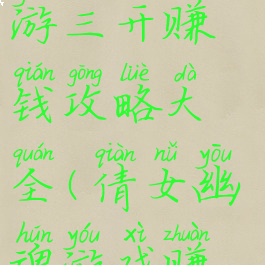 游三开赚
qián gōng lüè dà
钱攻略大
quán qiàn nǚ yōu
全(倩女幽
hún yóu xì zhuàn
魂游戏赚